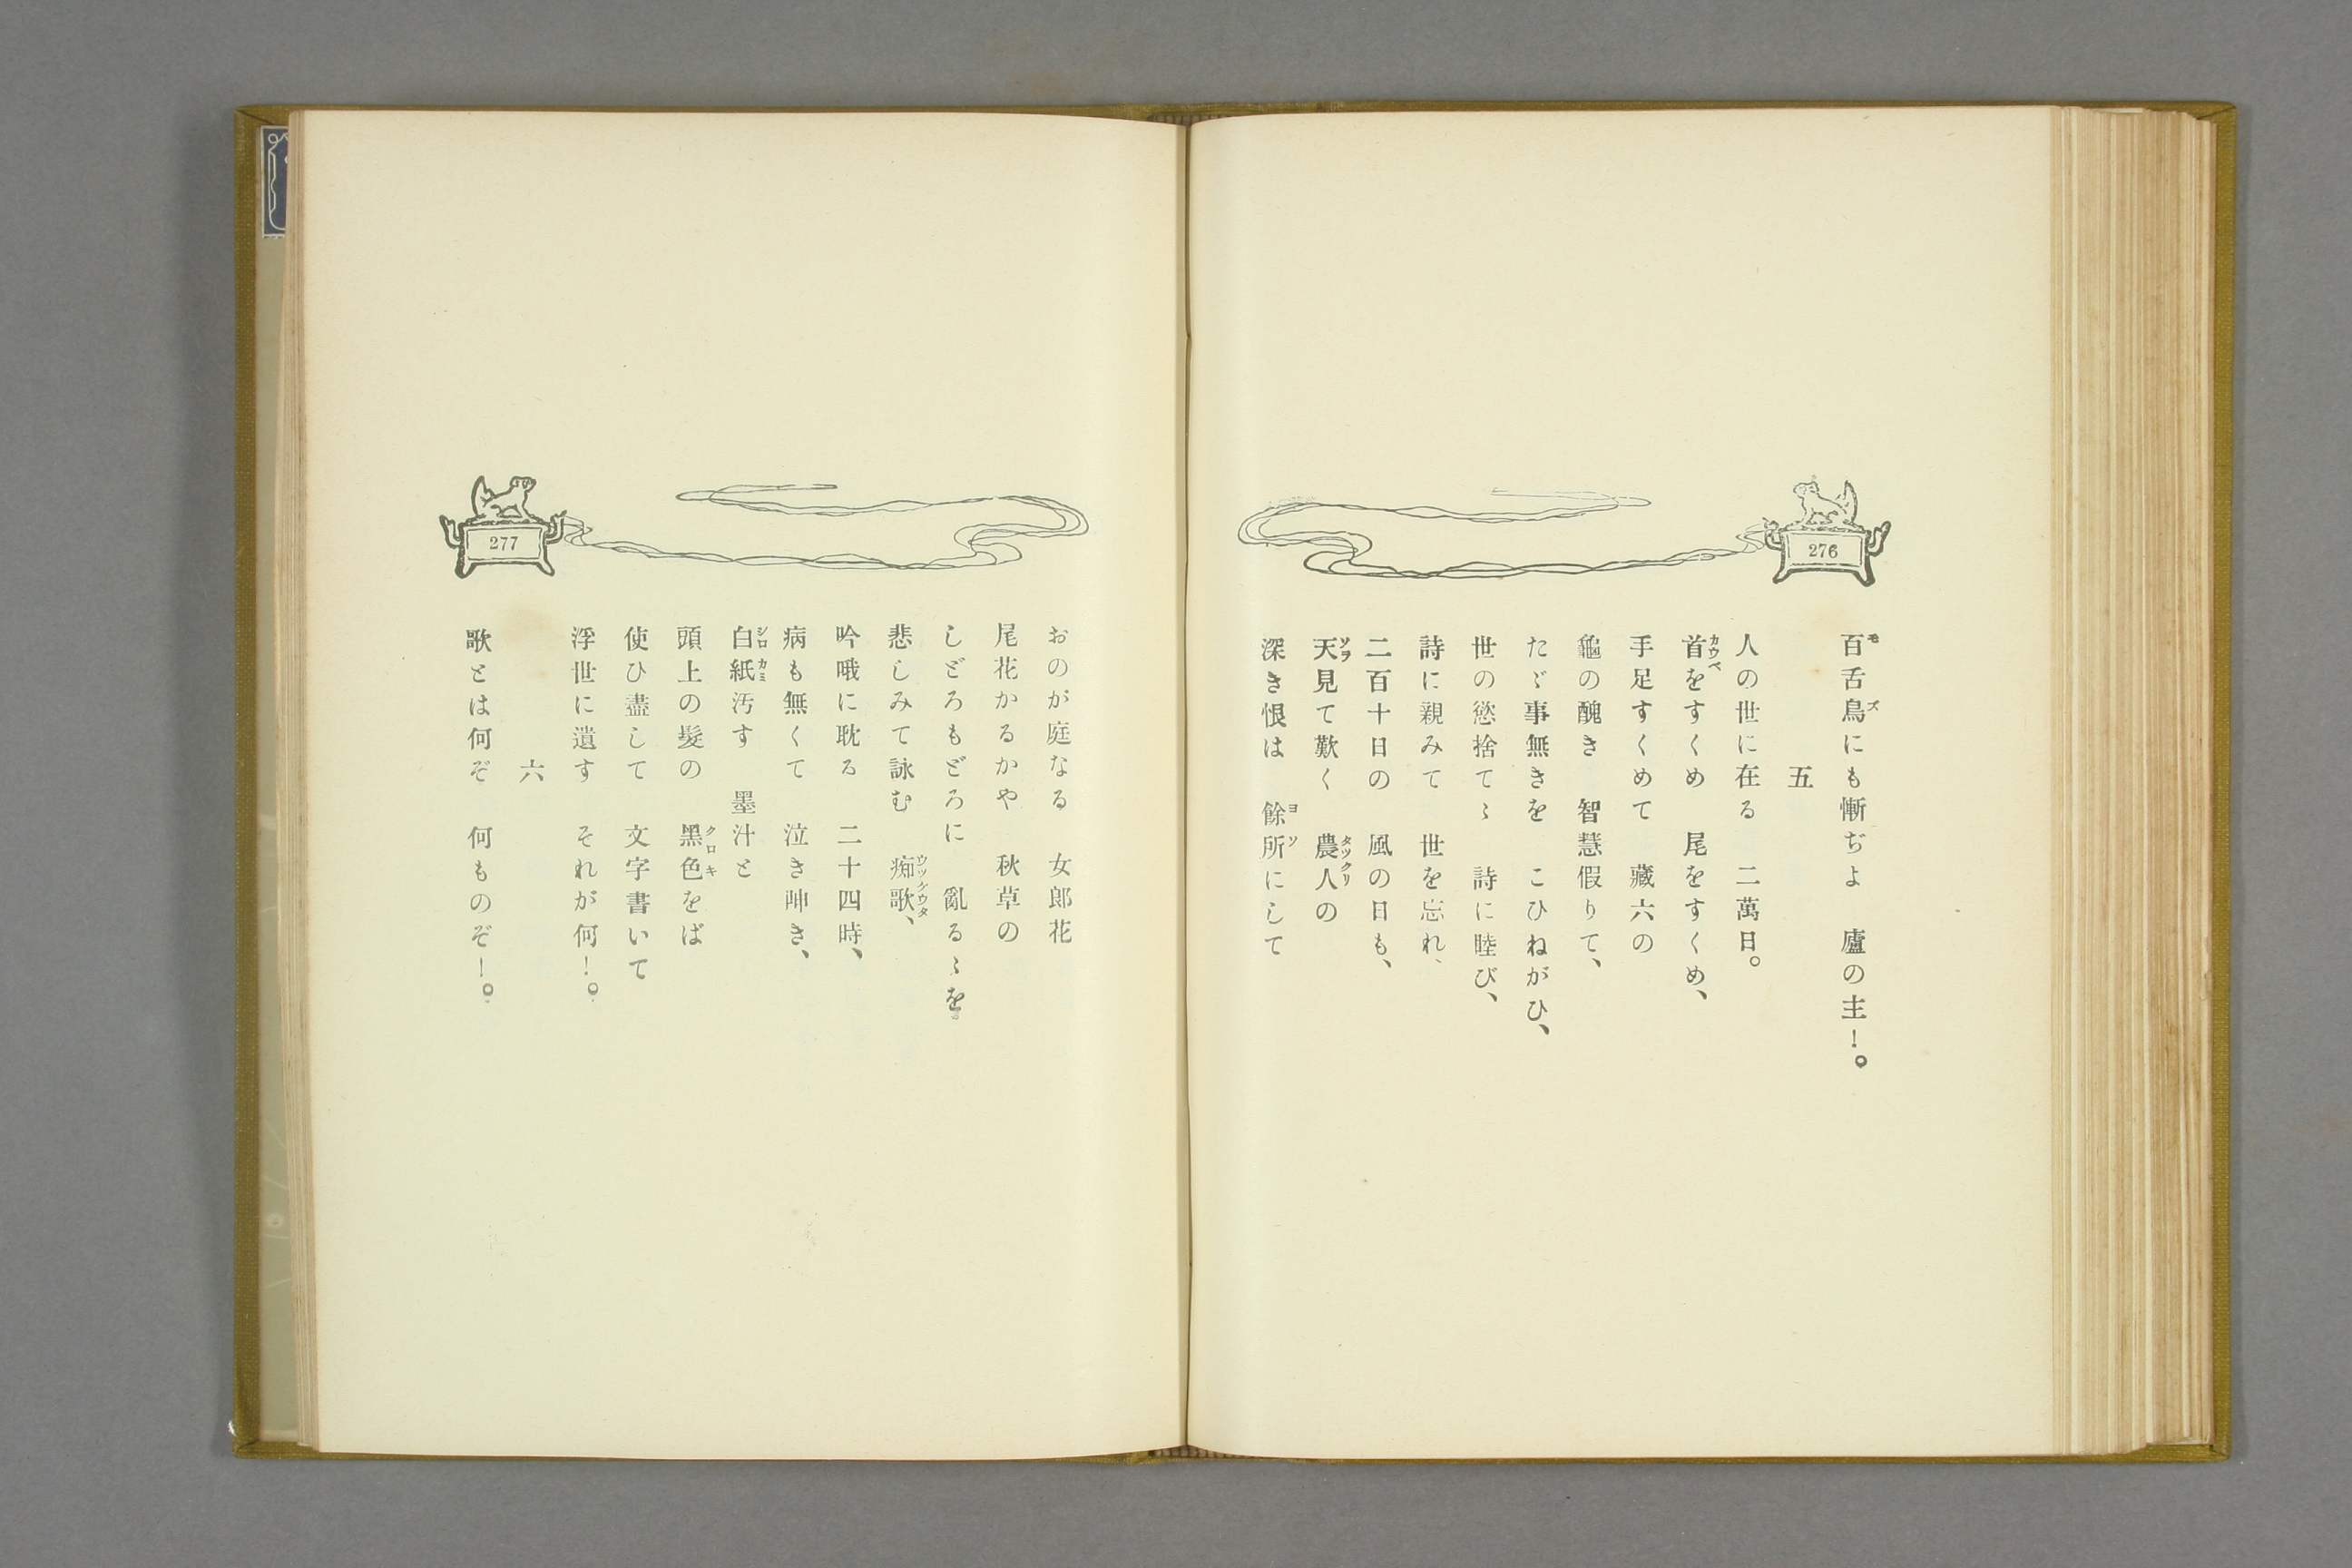 276
百舌鳥にも慚ぢよ　廬の主！。
五
人の世に在る　二萬日。
首をすくめ　尾をすくめ、
手足すくめて　藏六の
龜の醜き　智慧假りて、
たゞ事無きを　こひねがひ、
世の慾捨てゝ　詩に睦び、
詩に親みて　世を忘れ、
二百十日の　風の日も、
天見て歎く　農人の
深き恨は　餘所にして
277
おのが庭なる　女郎花
尾花かるかや　秋草の
しどろもどろに　亂るゝを
悲しみて詠む　痴歌、
吟哦に耽る　二十四時、
病も無くて　泣き呻き、
白紙汚す　墨汁と
頭上の髮の　黑色をば
使ひ盡して　文字書いて
浮世に遺す　それが何！。
六
歌とは何ぞ　何ものぞ！。